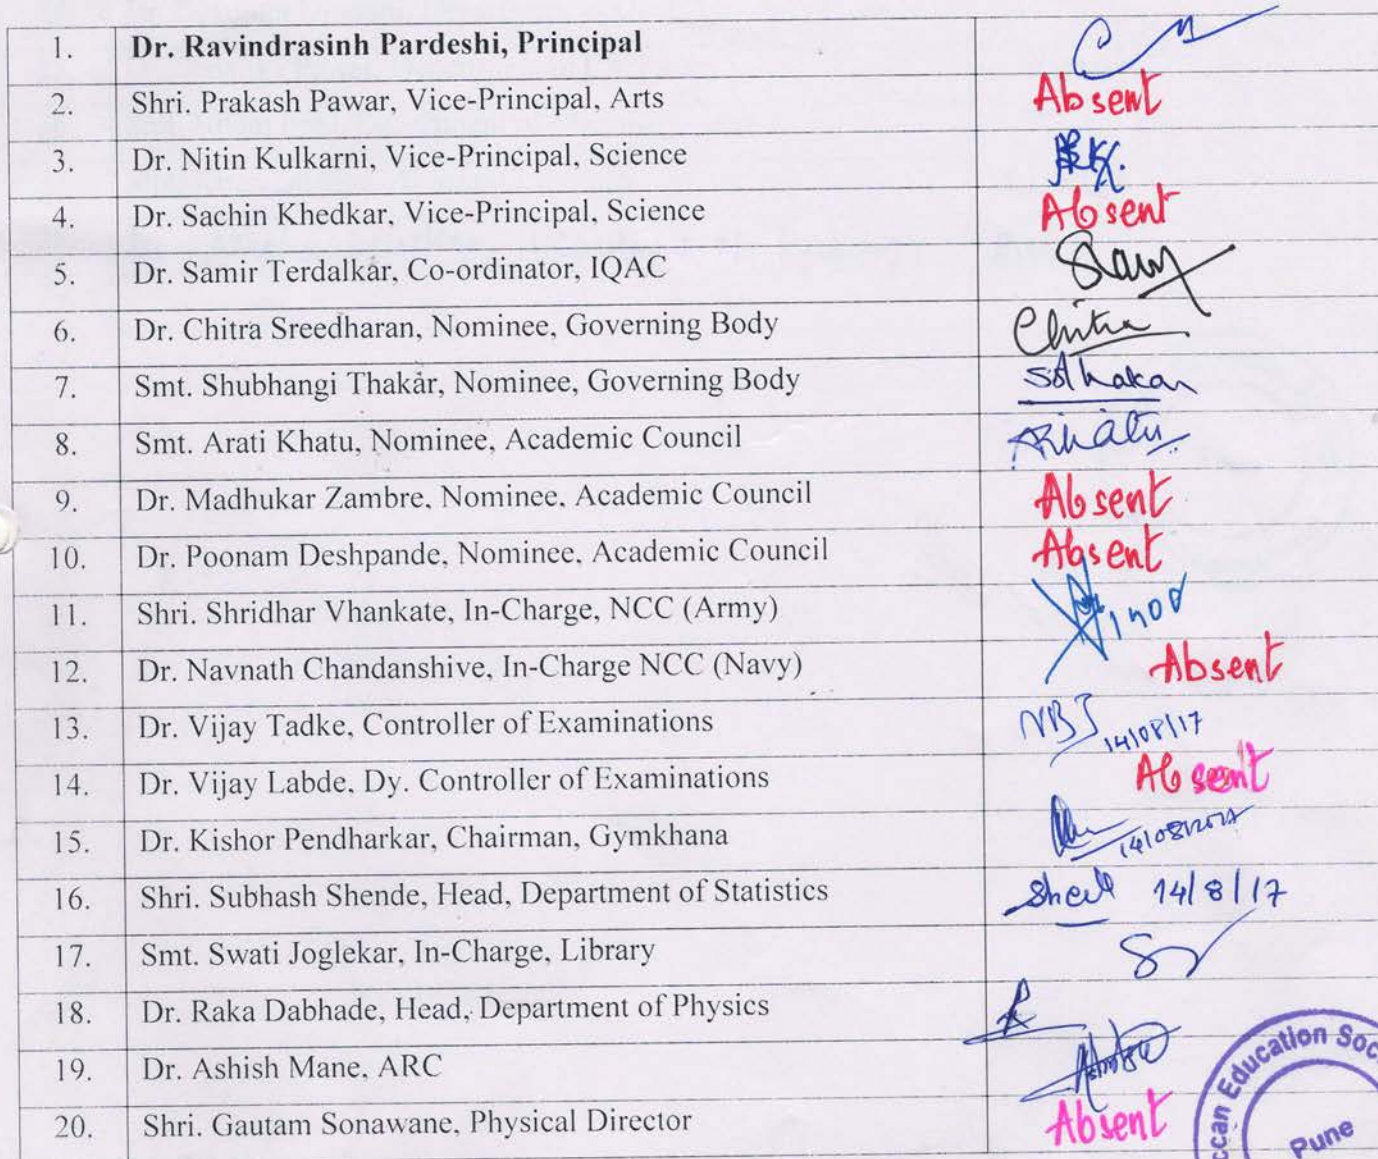 1. Dr. Ravindrasinh Pardeshi, Principal
2. Shri. Prakash Pawar, Vice-Principal, Arts Absent
3. Dr. Nitin Kulkarni, Vice-Principal, Science
4. Dr. Sachin Khedkar, Vice-Principal, Science Absent
5. Dr. Samir Terdalkar, Co-ordinator, IQAC
6. Dr. Chitra Sreedharan, Nominee, Governing Body Chitra
7. Smt. Shubhangi Thakar, Nominee, Governing Body SAThakar
8. Smt. Arati Khatu, Nominee, Academic Council AKhatu
9. Dr. Madhukar Zambre, Nominee, Academic Council Absent
10. Dr. Poonam Deshpande, Nominee, Academic Council Absent
11. Shri. Shridhar Vhankate, In-Charge, NCC (Army)
12. Dr. Navnath Chandanshive, In-Charge NCC (Navy) Absent
13. Dr. Vijay Tadke, Controller of Examinations 14/08/17
14. Dr. Vijay Labde, Dy. Controller of Examinations Absent
15. Dr. Kishor Pendharkar, Chairman, Gymkhana 14/08/2017
16. Shri. Subhash Shende, Head, Department of Statistics 14/8/17
17. Smt. Swati Joglekar, In-Charge, Library
18. Dr. Raka Dabhade, Head, Department of Physics
19. Dr. Ashish Mane, ARC
20. Shri. Gautam Sonawane, Physical Director Absent
ccan Education Soc
Pune